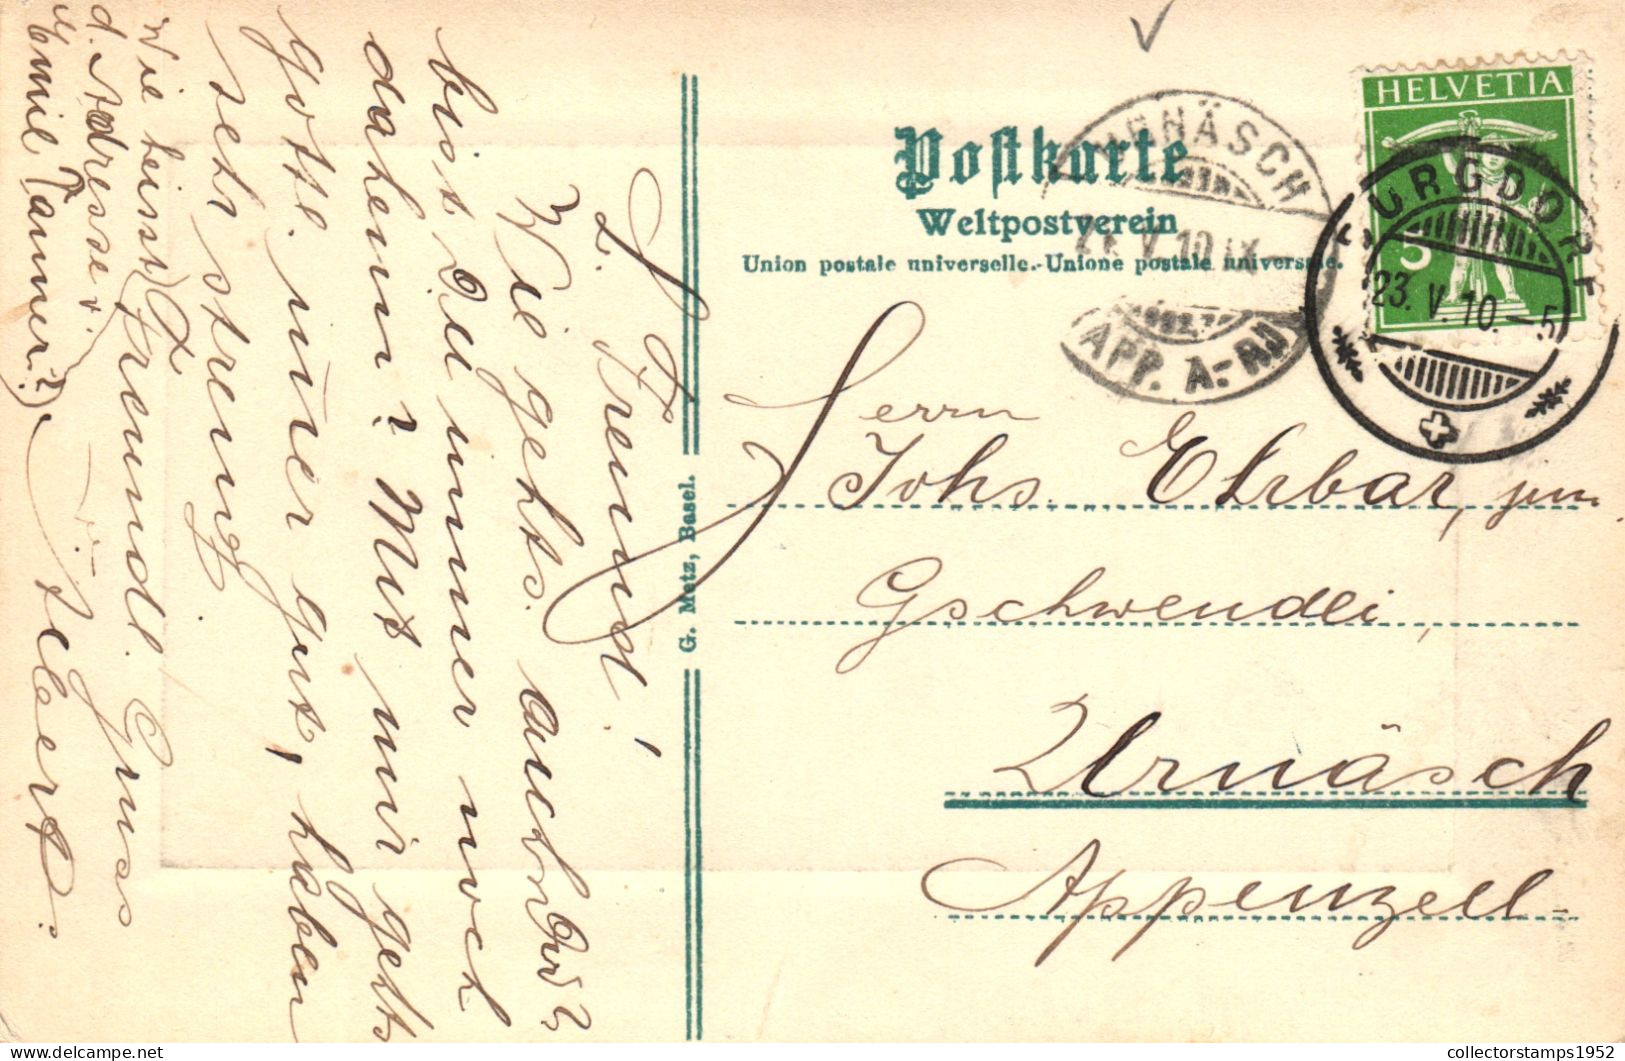 Postkarte
Weltpostverein
Union postale universelle.-Unione postale universale.
HELVETIA
5
BURGDORF
23. V. 10.-5
URNÄSCH
V. 10. IX
APP. A.-RH
Herrn
Johs. Ehrbar, jun.
Gschwendli,
Urnäsch
Appenzell.
G. Metz, Basel.
L. Freund!
Wie gehts auch
bist Du immer noch
daheim? Mit mir gehts
gottl. immer gut, haben
sehr streng.
Freundl. Gruss
Albert.
Wie heisst
d. Adresse v.
Emil Tanner?
collectorstamps1952